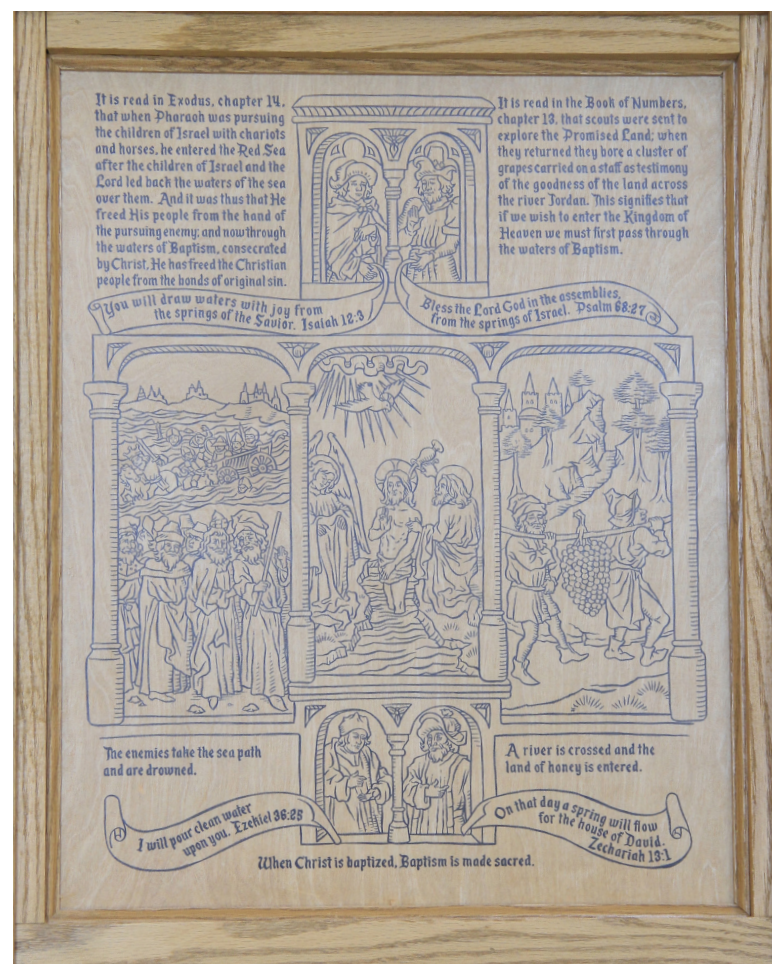 It is read in Exodus, chapter 14,
that when Pharaoh was pursuing
the children of Israel with chariots
and horses, he entered the Red Sea
after the children of Israel and the
Lord led back the waters of the sea
over them. And it was thus that He
freed His people from the hand of
the pursuing enemy; and now through
the waters of Baptism, consecrated
by Christ, He has freed the Christian
people from the bonds of original sin.
It is read in the Book of Numbers,
chapter 13, that scouts were sent to
explore the Promised Land; when
they returned they bore a cluster of
grapes carried on a staff as testimony
of the goodness of the land across
the river Jordan. This signifies that
if we wish to enter the Kingdom of
Heaven we must first pass through
the waters of Baptism.
You will draw waters with joy from
the springs of the Savior. Isaiah 12:3
Bless the Lord God in the assemblies,
from the springs of Israel. Psalm 68:27
The enemies take the sea path
and are drowned.
A river is crossed and the
land of honey is entered.
I will pour clean water
upon you. Ezekiel 36:25
On that day a spring will flow
for the house of David.
Zechariah 13:1
When Christ is baptized, Baptism is made sacred.